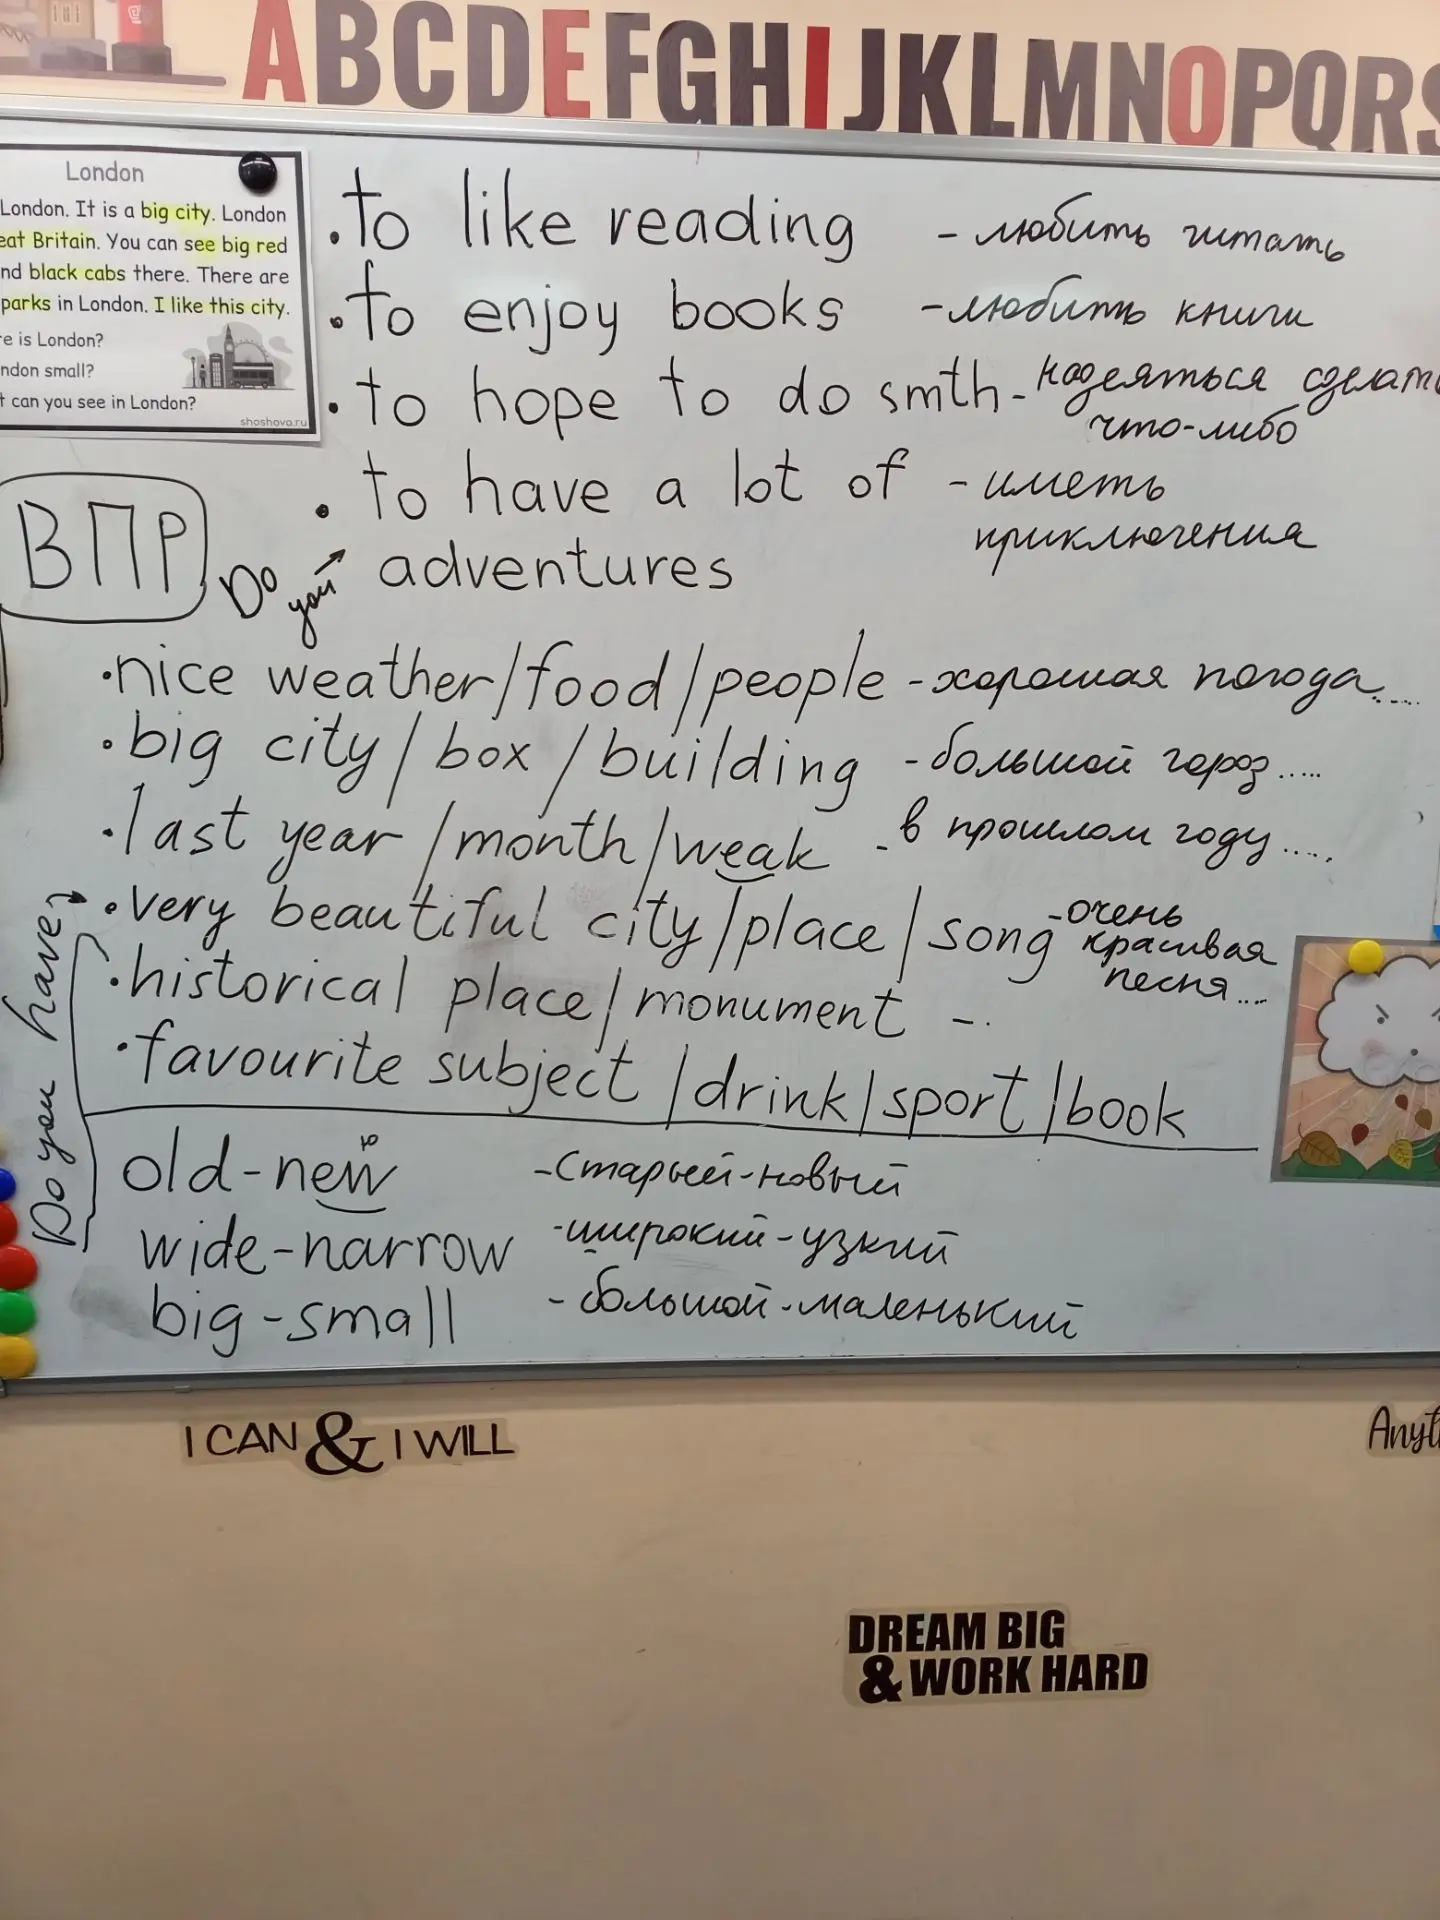 ABCDEFGHIJKLMNOPQRS
London
London. It is a big city. London
eat Britain. You can see big red
nd black cabs there. There are
parks in London. I like this city.
re is London?
ndon small?
t can you see in London?
shoshova.ru
• to like reading - любить читать
• to enjoy books - любить книги
• to hope to do smth - надеяться сделать
что-либо
• to have a lot of - иметь
adventures приключения
ВПР
Do you
• nice weather/food/people - хорошая погода.....
• big city/box/building - большой город.....
• last year/month/weak - в прошлом году.....
• very beautiful city/place/song - очень
красивая
песня...
• historical place/monument -
• favourite subject/drink/sport/book
Do you have
ю
old-new - старый-новый
wide-narrow - широкий-узкий
big-small - большой-маленький
I CAN & I WILL
Anyt
DREAM BIG
& WORK HARD